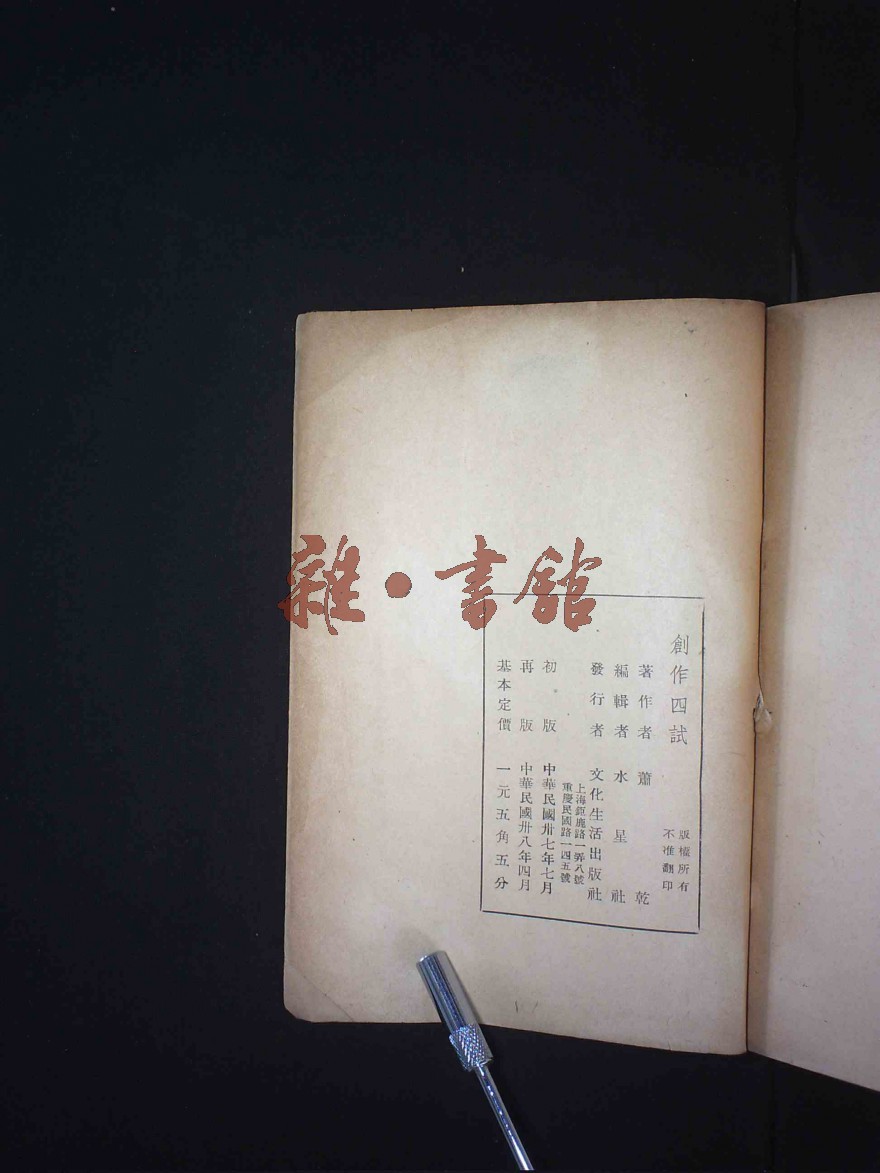 雜·書館
創作四試
版權所有
不准翻印
著作者 蕭乾
編輯者 水星社
發行者 文化生活出版社
上海鉅鹿路一弄八號
重慶民國路一四五號
初版 中華民國卅七年七月
再版 中華民國卅八年四月
基本定價 一元五角五分